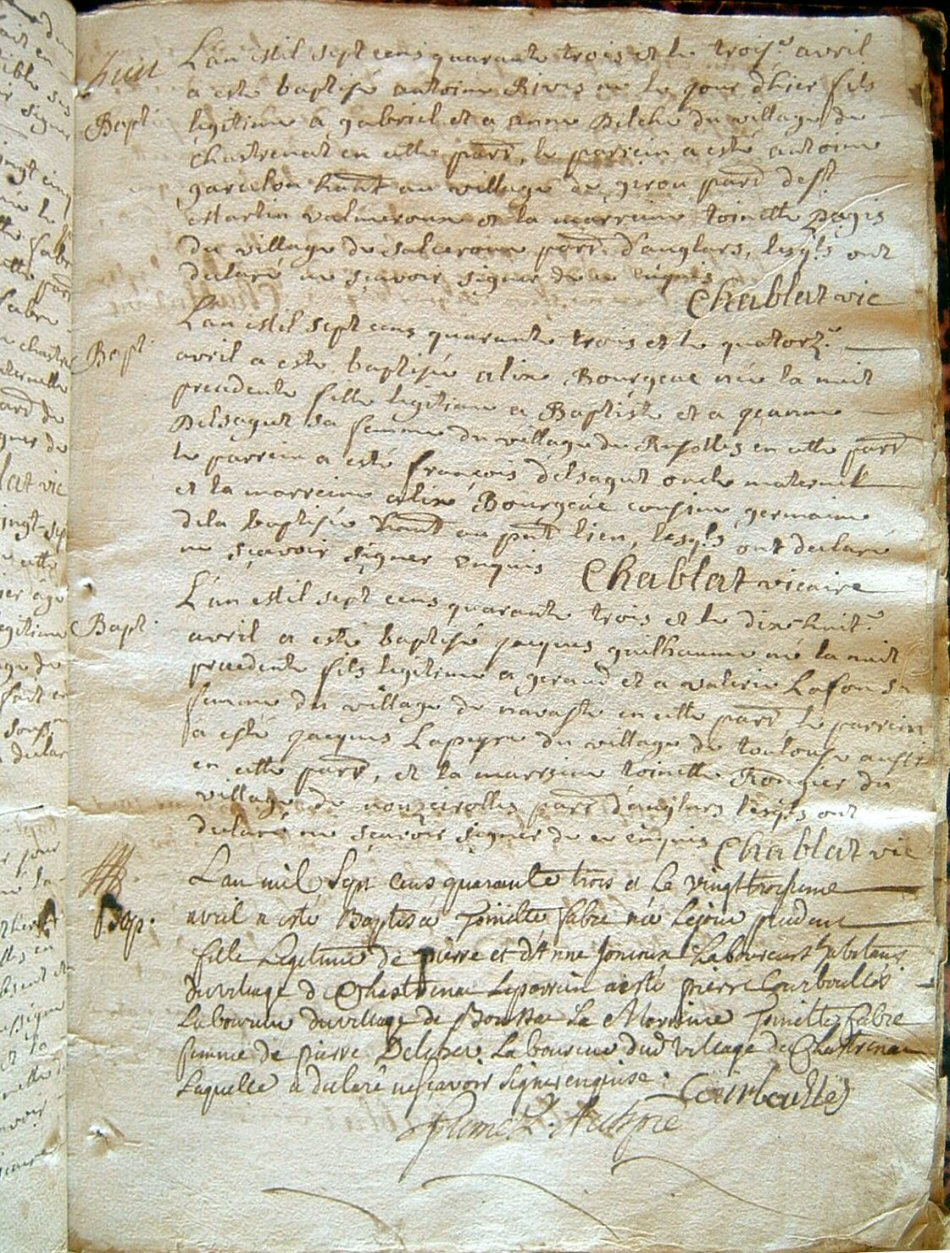 huit
L'an mil sept cens quarante trois et le trois.e avril
Bapt.
a este baptisé antoine Rives né le jour d'hier fils
legitime a gabriel et a anne Delche du village de
Chastrenat en cette parr, le parrein a esté antoine
garcelon habitt au village de parr de st
martin valmeroune et la marreine toinette pagis
du village de Salcroune parr d'anglars, lesqls ont
declaré ne sçavoir signer de ce enquis
Chablat vic
Bapt.
L'an mil sept cens quarante trois et le quatorz.e
avril a este baptisée alixe Bourgeat née la nuit
precedente fille legitime a Baptiste et a jeanne
Delsaguet sa femme du village de en cette parr
le parrein a esté françois delsaguet oncle maternel
et la marreine alixe Bourgeat cousine germaine
de la baptisée habitt au pnt lieu, lesqls ont declaré
ne sçavoir signer enquis Chablat vicaire
Bapt.
L'an mil sept cens quarante trois et le dix huit.e
avril a esté baptisé jacques guilhaume né la nuit
precedente fils legitime a gerard et a valerie Lafon sa
femme du village de navaste en cette parr le parrein
a esté jacques Lapeyre du village de toulouse aussi
en cette parr, et la marreine toinette Rongier du
village de nouzeirolles parr d'anglars lesqls ont
declaré ne sçavoir signer de ce enquis Chablat vic
L'an mil Sept cens quarante trois et Le vingt troisieme
Bap.
avril a esté Baptisée Toinette fabre née Le jour precedent
fille Legitime de pierre et d'Anne Laboureurs habitans
du village de Chastrenac Le parrein a esté pierre Courboulés
Laboureur du village de Boussac La Mareine Toinette fabre
femme de pierre Laboureur dud village de Chastrenac
Laquelle a declaré ne sçavoir signer enquise. Courboulles